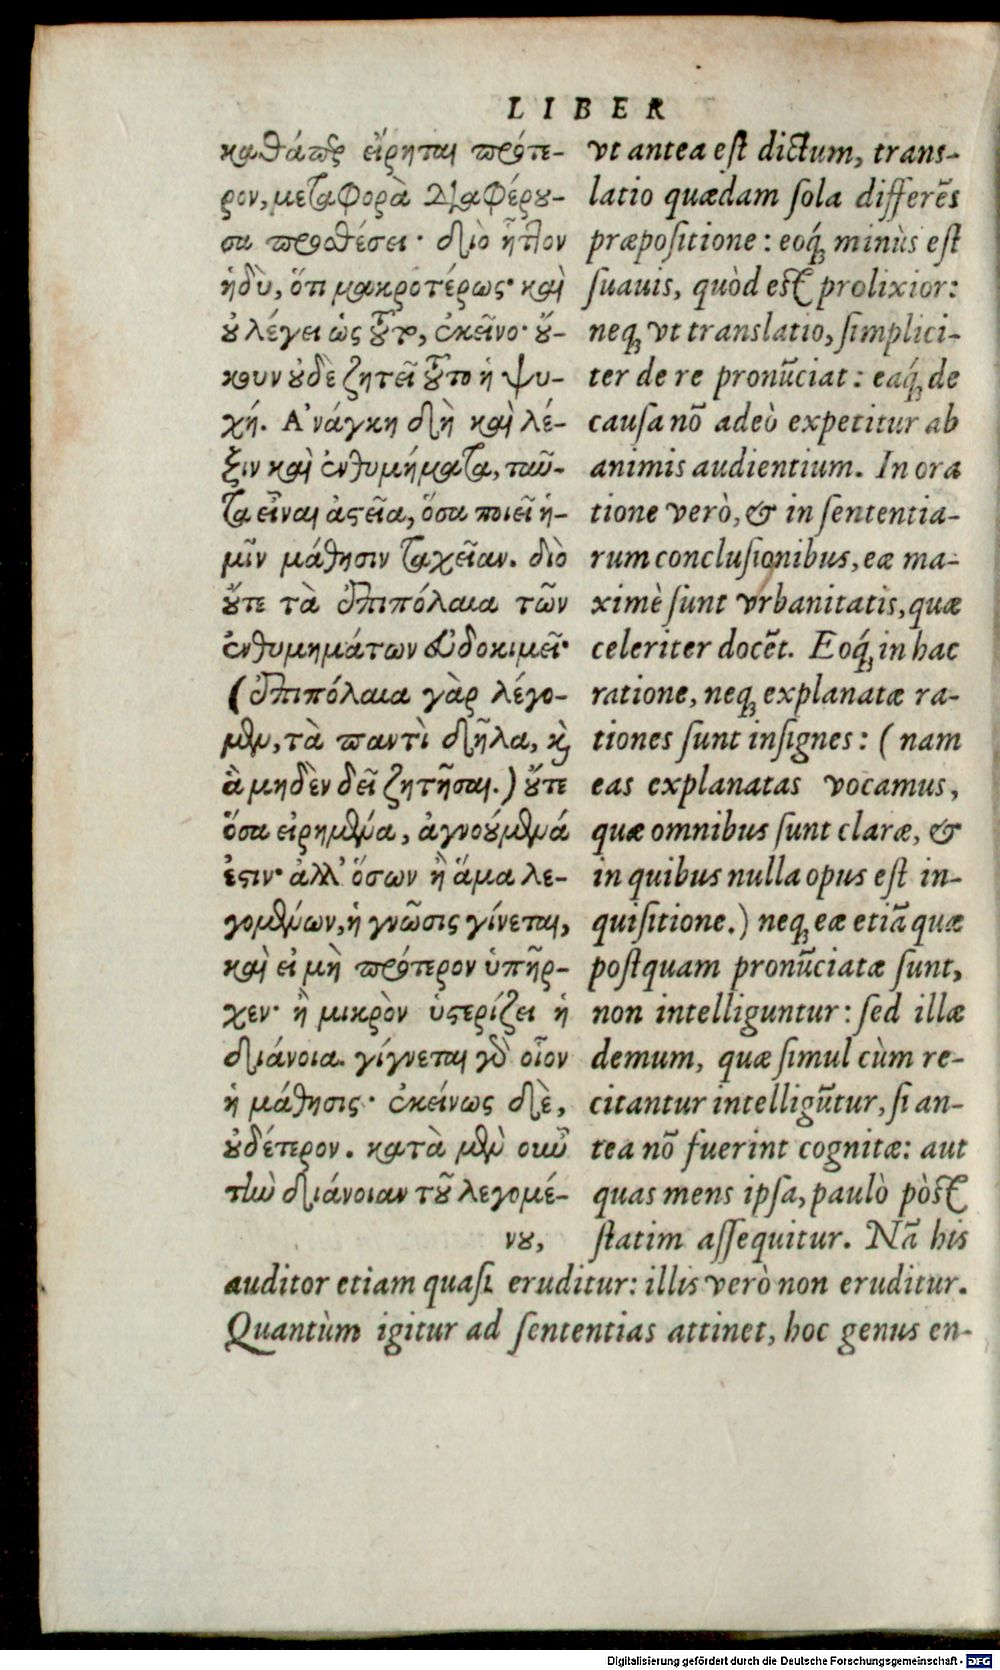 LIBER
καθάπερ εἴρηται πρότε-
ρον, μεταφορὰ διαφέρου-
σα προθέσει· διὸ ἧττον
ἡδὺ, ὅτι μακροτέρως· καὶ
οὐ λέγει ὡς τοῦτο, ἐκεῖνο· οὔ-
κουν οὐδὲ ζητεῖ τοῦτο ἡ ψυ-
χή. Ἀνάγκη δὴ καὶ λέ-
ξιν καὶ ἐνθυμήματα, ταῦ-
τα εἶναι ἀστεῖα, ὅσα ποιεῖ ἡ-
μῖν μάθησιν ταχεῖαν. διὸ
οὔτε τὰ ἐπιπόλαια τῶν
ἐνθυμημάτων εὐδοκιμεῖ·
(ἐπιπόλαια γὰρ λέγο-
μεν, τὰ παντὶ δῆλα, καὶ
ἃ μηδὲν δεῖ ζητῆσαι.) οὔτε
ὅσα εἰρημένα, ἀγνοούμενά
ἐστιν· ἀλλ' ὅσων ἢ ἅμα λε-
γομένων, ἡ γνῶσις γίνεται,
καὶ εἰ μὴ πρότερον ὑπῆρ-
χεν· ἢ μικρὸν ὑστερίζει ἡ
διάνοια. γίγνεται γὰρ οἷον
ἡ μάθησις· ἐκείνως δὲ,
οὐδέτερον. κατὰ μὲν οὖν
τὴν διάνοιαν τοῦ λεγομέ-
νου,
vt antea est dictum, trans-
latio quædam sola differẽs
præpositione: eoq́; minùs est
suauis, quòd est prolixior:
neq; vt translatio, simplici-
ter de re pronũciat: eaq́; de
causa nõ adeò expetitur ab
animis audientium. In ora
tione verò, & in sententia-
rum conclusionibus, eæ ma-
ximè sunt vrbanitatis, quæ
celeriter docẽt. Eoq́; in hac
ratione, neq; explanatæ ra-
tiones sunt insignes: (nam
eas explanatas vocamus,
quæ omnibus sunt claræ, &
in quibus nulla opus est in-
quisitione.) neq; eæ etiã quæ
postquam pronũciatæ sunt,
non intelliguntur: sed illæ
demum, quæ simul cùm re-
citantur intelligũtur, si an-
tea nõ fuerint cognitæ: aut
quas mens ipsa, paulò pòst
statim assequitur. Nã his
auditor etiam quasi eruditur: illis verò non eruditur.
Quantùm igitur ad sententias attinet, hoc genus en-
Digitalisierung gefördert durch die Deutsche Forschungsgemeinschaft - DFG